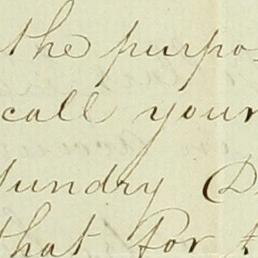 the purpo
call your
Sundry D
that for t